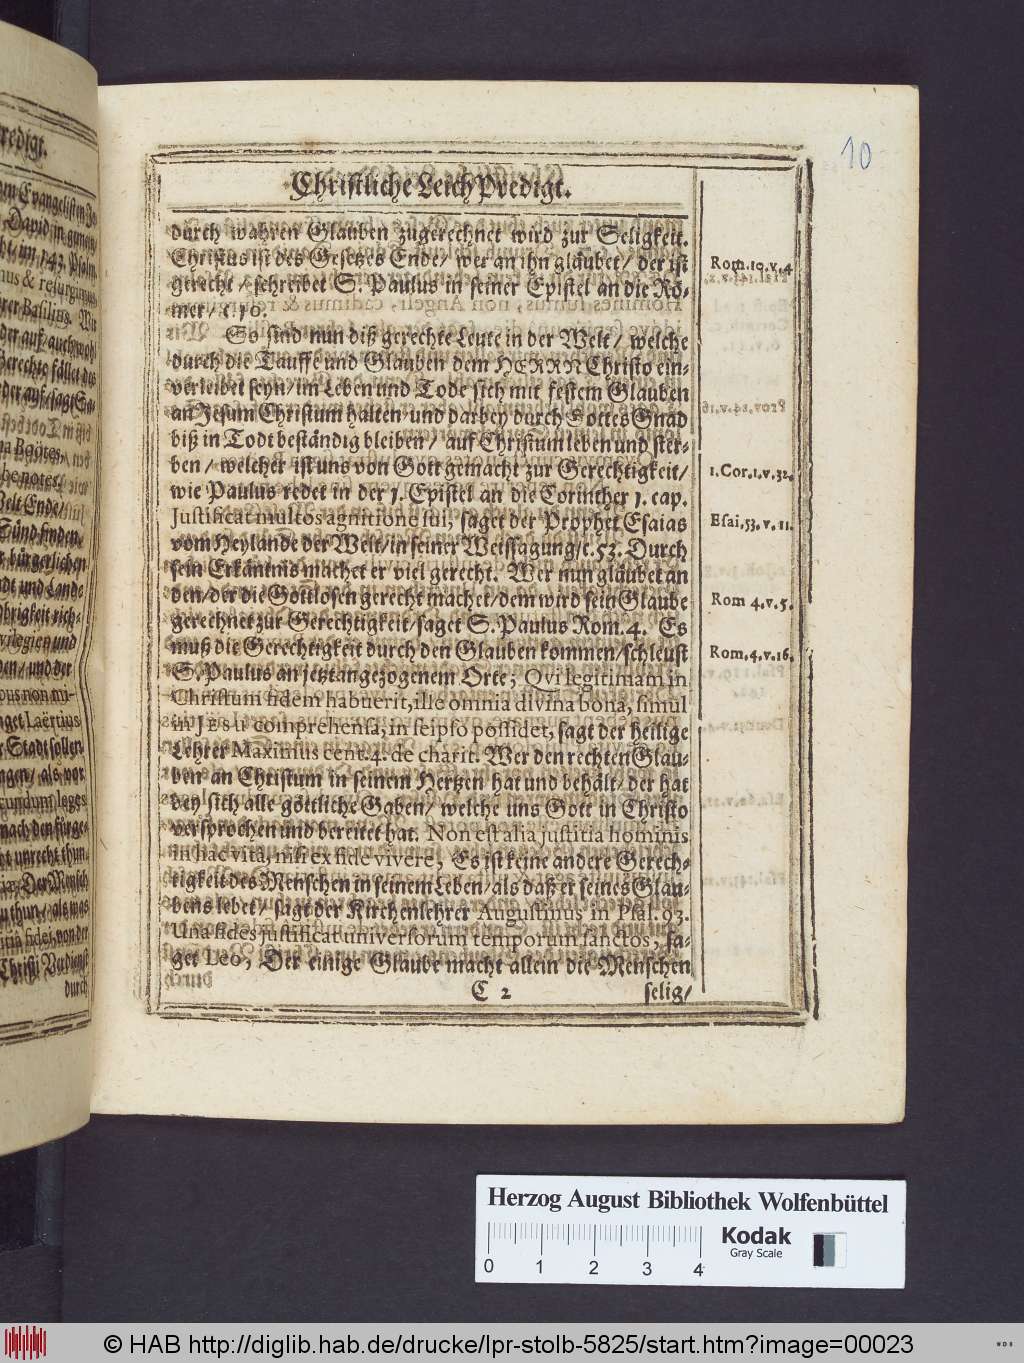 redigt.
em Evangelisten Jo
David in gemein
im 143. Psalm.
mus & resurgimus
rer Basilius. Wir
der auf/ auch wohl
Gerechte fället des
der auf/ sagt Sa-
na Boötes,
be notes.
Welt Ende/
Sünd finden.
r bürgerlichen
dt und Land-
brigkeit rich-
vilegien und
den/ und der
bus non mi-
get Laërtius
r Stadt sollen
ngen/ als vor
cundum leges
nach den fürge-
ht unrecht thun.
Der Mensch
u thun/ als was
titia fidei, von der
Christi Verdienst
durch
10
Christliche LeichPredigt.
durch wahren Glauben zugerechnet wird zur Seligkeit.
Christus ist des Gesetzes Ende/ wer an ihn gläubet/ der ist
gerecht/ schreibet S. Paulus in seiner Epistel an die Rö-
mer/ c. 10.
So sind nun diß gerechte Leute in der Welt/ welche
durch die Tauffe und Glauben dem HERRN Christo ein-
verleibet seyn/ im Leben und Tode sich mit festem Glauben
an Jesum Christum halten und darbey durch Gottes Gnad
biß in Todt beständig bleiben/ auf Christum leben und ster-
ben/ welcher ist uns von Gott gemacht zur Gerechtigkeit/
wie Paulus redet in der 1. Epistel an die Corinther 1. cap.
Justificat multos agnitione sui, saget der Prophet Esaias
vom Heylande der Welt/ in seiner Weissagung/ c. 53. Durch
sein Erkäntnis machet er viel gerecht. Wer nun gläubet an
den/ der die Gottlosen gerecht machet/ dem wird sein Glaube
gerechnet zur Gerechtigkeit/ saget S. Paulus Rom. 4. Es
muß die Gerechtigkeit durch den Glauben kommen/ schleust
S. Paulus an jetztangezogenem Orte; Qvi legitimam in
Christum fidem habuerit, ille omnia divina bona, simul
in JEsu comprehensa, in seipso possidet, sagt der heilige
Lehrer Maximius cent. 4. de charit. Wer den rechten Glau-
ben an Christum in seinem Hertzen hat und behält/ der hat
bey sich alle göttliche Gaben/ welche uns Gott in Christo
versprochen und bereitet hat. Non est alia justitia hominis
in hac vita, nisi ex fide vivere, Es ist keine andere Gerech-
tigkeit des Menschen in seinem Leben/ als daß er seines Glau-
bens lebet/ sagt der Kirchenlehrer Augustinus in Psal. 93.
Una fides justificat universorum temporum sanctos, sa-
get Leo, Der einige Glaube macht allein die Menschen
C 2 selig/
Rom. 10. v. 4
1. Cor. 1. v. 32.
Esai, 53. v. 11.
Rom 4. v. 5.
Rom. 4. v. 16.
Herzog August Bibliothek Wolfenbüttel
0 1 2 3 4
Kodak
Gray Scale
© HAB http://diglib.hab.de/drucke/lpr-stolb-5825/start.htm?image=00023